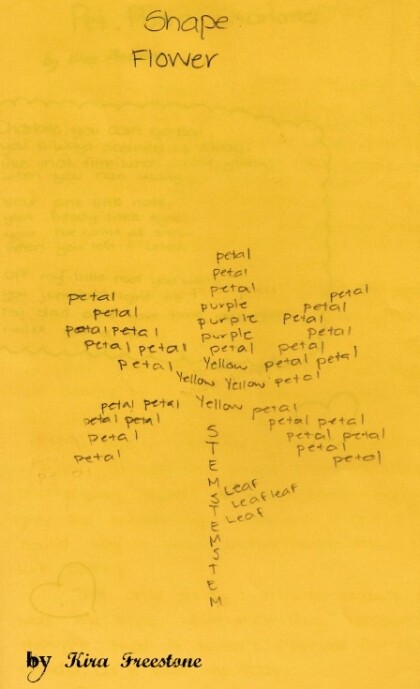 Shape
Flower
petal
petal
petal
petal purple petal petal
petal purple petal
petal petal purple petal
petal petal petal petal
petal Yellow petal petal
Yellow Yellow petal
petal petal Yellow petal
petal petal petal petal
petal petal petal
petal petal
petal
STEMSTEMSTEM
Leaf
Leaf leaf
Leaf
by Kira Freestone